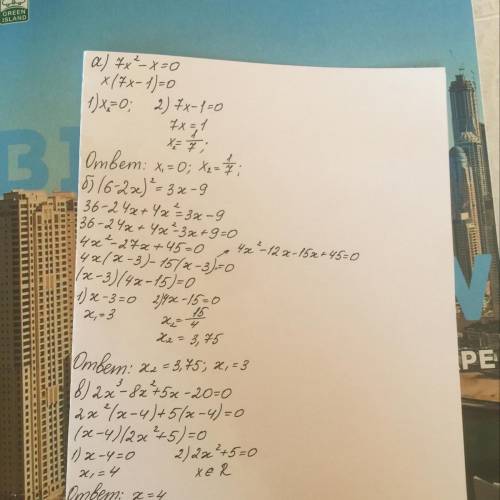 GREEN
ISLAND
а) 7x² - x = 0
x(7x-1)=0
1) x₁=0; 2) 7x-1=0
7x=1
x₂=1/7;
Ответ: x₁=0; x₂=1/7;
б) (6-2x)²=3x-9
36-24x+4x²=3x-9
36-24x+4x²-3x+9=0
4x²-27x+45=0
4x²-12x-15x+45=0
4x(x-3)-15(x-3)=0
(x-3)(4x-15)=0
1) x-3=0 2) 4x-15=0
x₁=3 x₂=15/4
x₂=3,75
Ответ: x₂=3,75; x₁=3
в) 2x³-8x²+5x-20=0
2x²(x-4)+5(x-4)=0
(x-4)(2x²+5)=0
1) x-4=0 2) 2x²+5=0
x₁=4 x∈R
Ответ: x=4